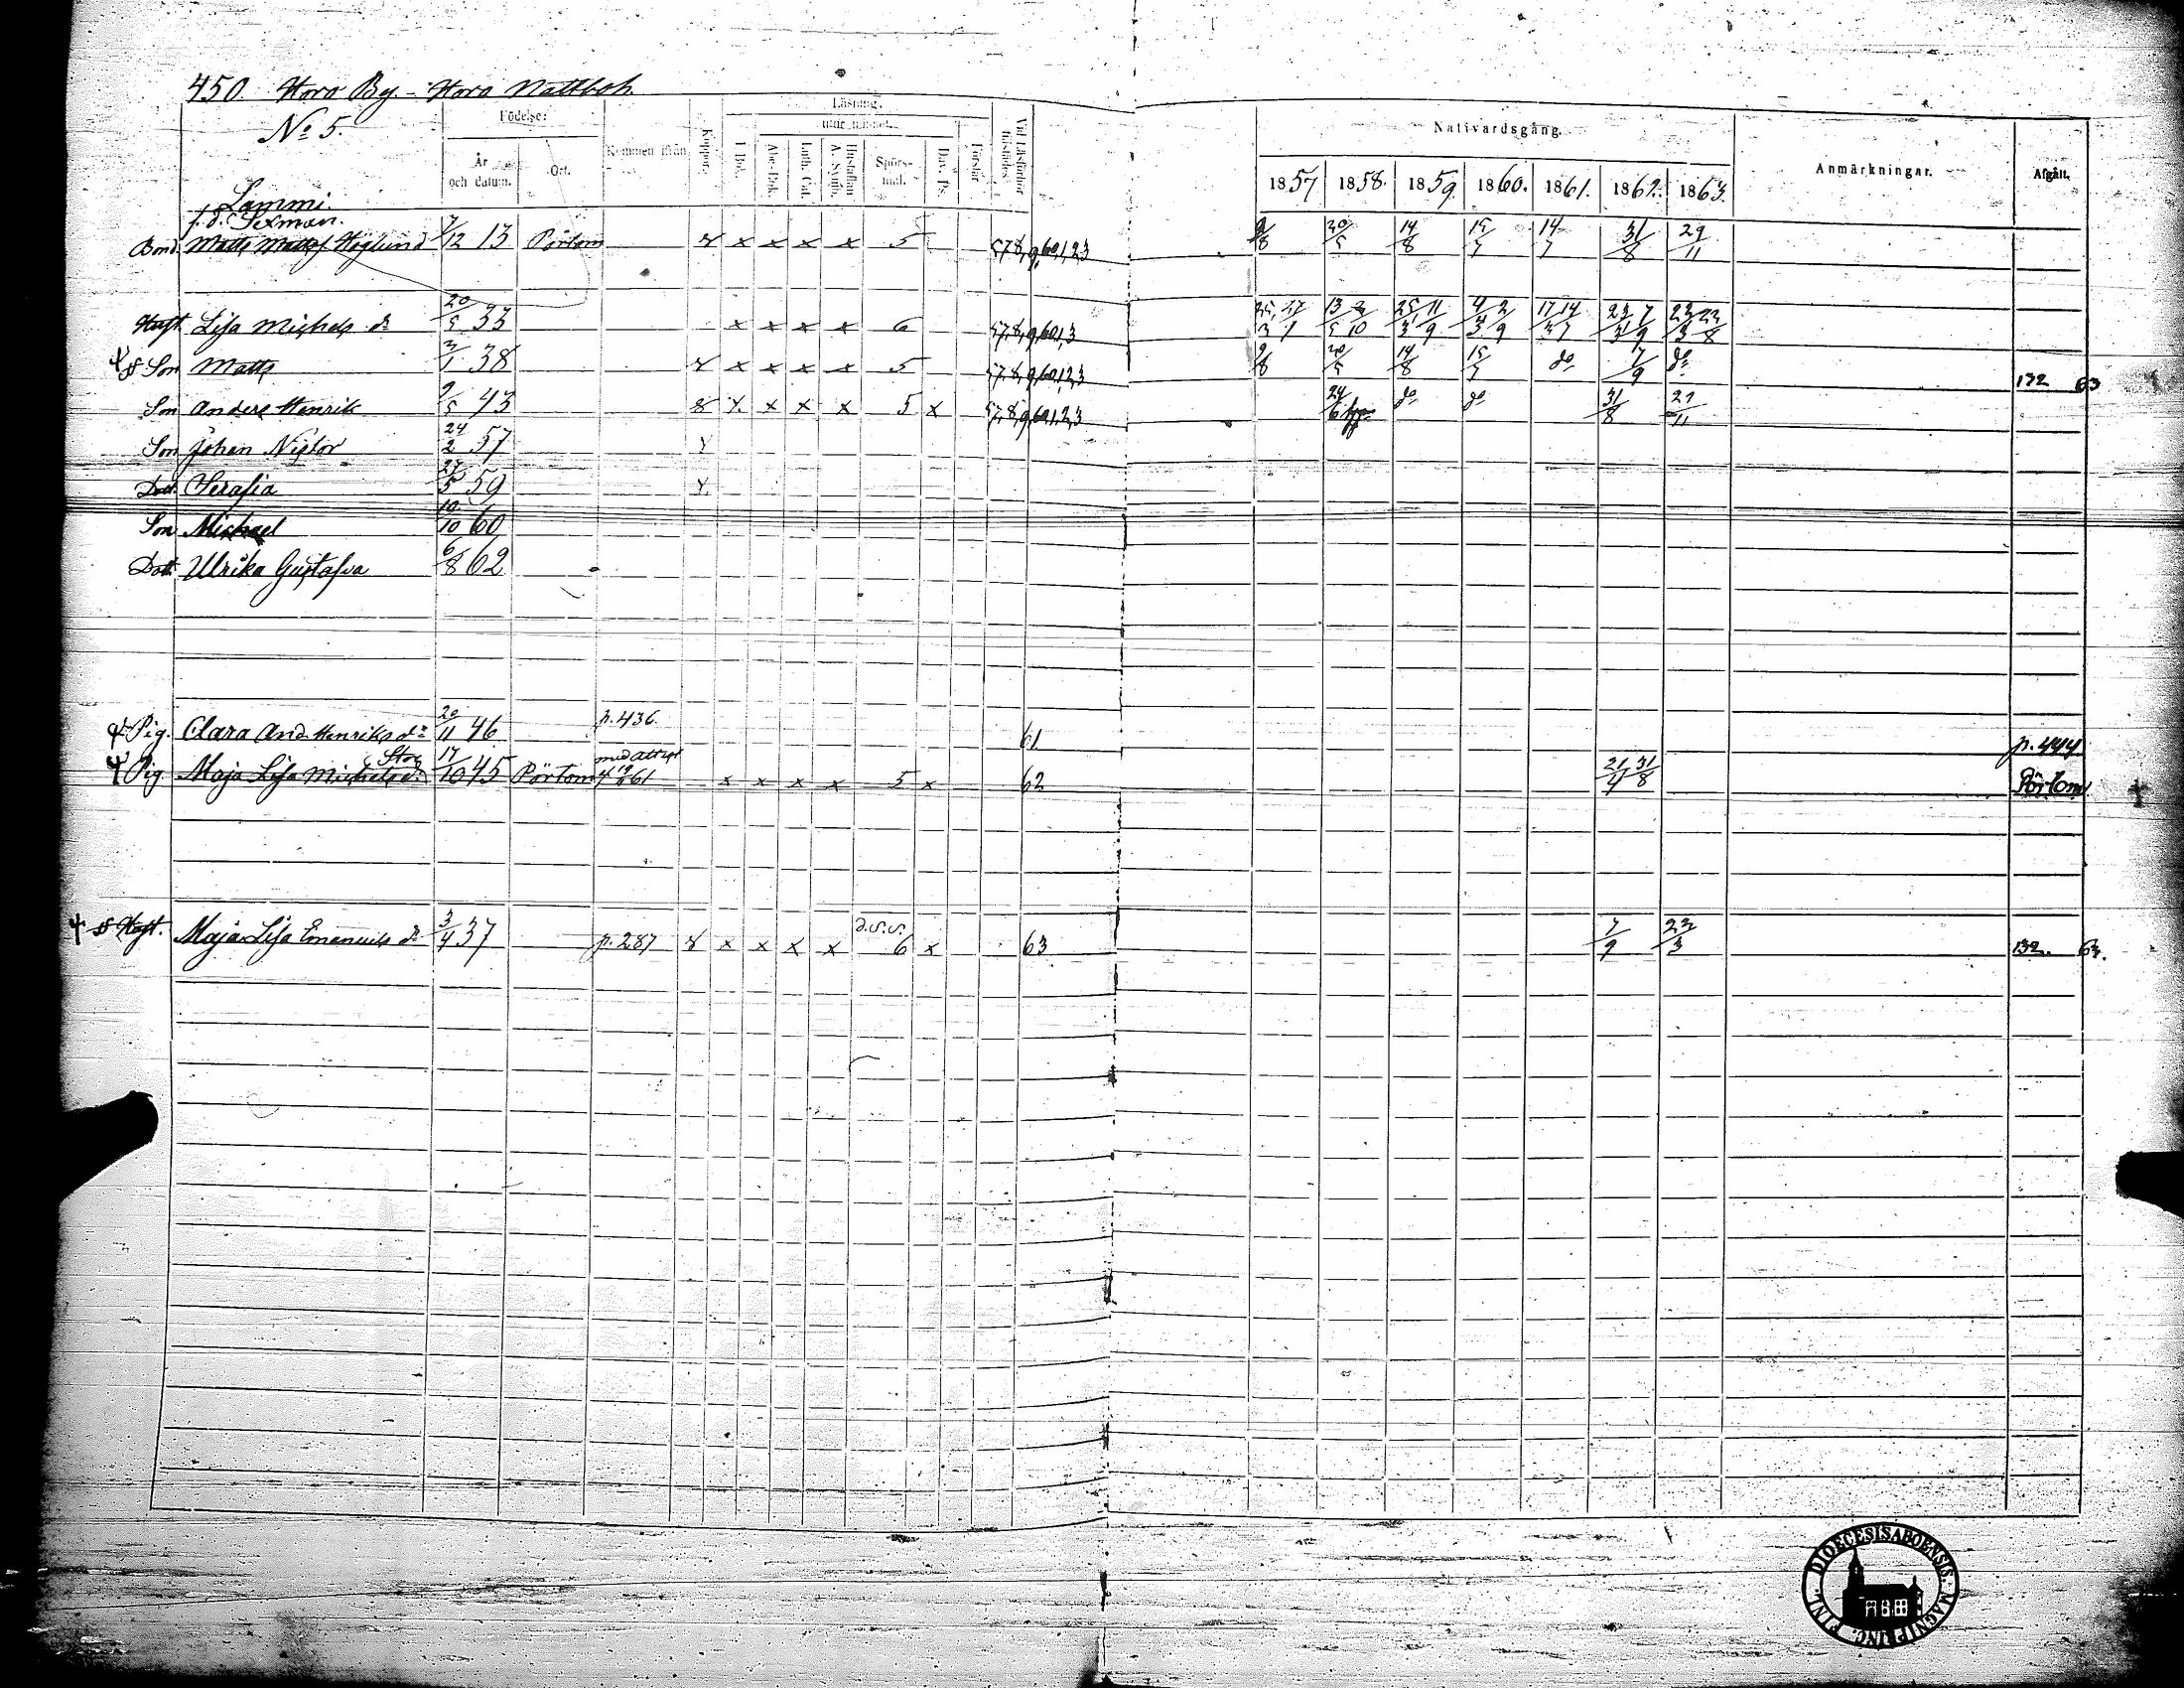 450. Horo By. - Horo Nattboh.
No 5.
Födelse: Läsning. Nattvardsgång.
utur minnet.
År och datum. Ort. Kommen ifrån Koppor. I Bok. Abc-Bok. Luth. Cat. Hustaflan A. Symb. Spörsmål. Dav. Ps. Förstår Vid Läsförhör tillstädes
1857 1858. 1859. 1860. 1861. 1862. 1863. Anmärkningar. Afgått.
Lammi.
f.d. Sexman.
Bond. Matts Matts Höglund 7/12 13 Pörtom x x x x 5 57,8,9,60,1,2,3 9/8 20/5 14/8 15/7 14/7 31/8 29/11
Hust. Lisa Michels dr 20/5 33 x x x x 6 57,8,9,60,1,3 13 2/5 10 25 11/3 9 4 2/3 9 17 14/3 7 23 7/3 9 22 23/3 8
Son Matts 3/1 38 x x x x 5 57,8,9,60,1,2,3 9/8 20/5 14/8 15/7 do 7/9 do 132 63
Son Anders Henrik 9/5 43 x x x x 5 x 57,8,9,60,1,2,3 24/6 do do 31/8 29/11
Son Johan Nistor 24/2 57
Dott. Serafia 27/5 59
Son Michael 10/10 60
Dott. Ulrika Gustafva 6/8 62
Pig. Clara And. Henriks dr 20/11 46 p. 436. 61 p. 444
Stor
med attest
Pig. Maja Lisa Michelsdr 17/10 45 Pörtom 61 x x x x 5 x 62 21/4 31/8 Pörtom
Hust. Maja Lisa Emanuels dr 3/4 37 p. 287 x x x x 6 x 63 7/9 22/3 132. 63.
FINL. DIOECESIS ABOENSIS. MAGNI PRINC.